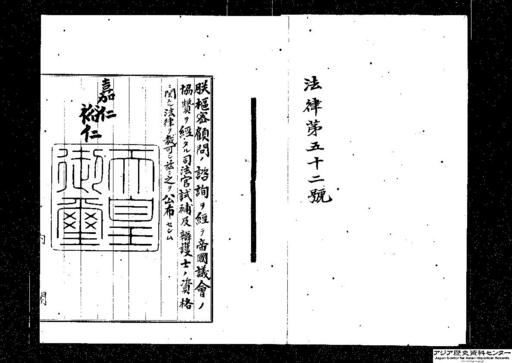 法律第五十二號
朕樞密顧問ノ諮詢ヲ經テ帝國議會ノ
協贊ヲ經タル司法官試補及辯護士ノ資格
ニ關スル法律ヲ裁可シ茲ニ之ヲ公布セシム
嘉仁
裕仁
天皇
御璽
アジア歴史資料センター
Japan Center for Asian Historical Records